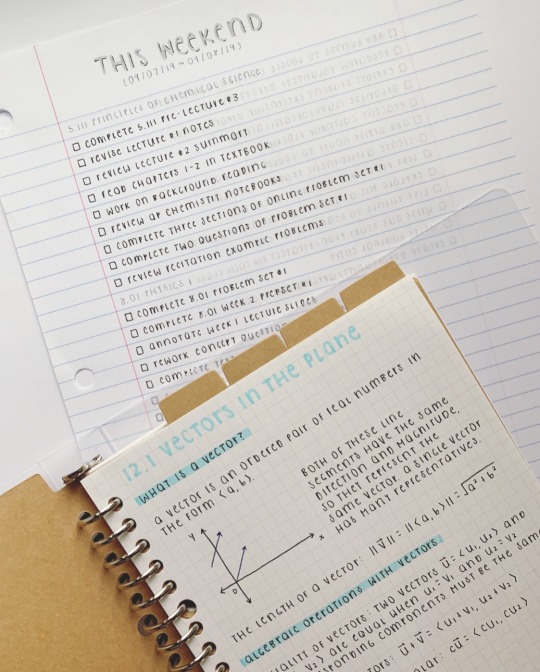 THIS WEEKEND
(09/07/19~09/08/19)
5.111 PRINCIPLES OF CHEMICAL SCIENCE:
□ COMPLETE 5.111 PRE-LECTURE #3
□ REVISE LECTURE #1 NOTES
□ REVIEW LECTURE #2 SUMMARY
□ READ CHAPTERS 1-2 IN TEXTBOOK
□ WORK ON BACKGROUND READING
□ REVIEW AP CHEMISTRY NOTEBOOKS
□ COMPLETE THREE SECTIONS OF ONLINE PROBLEM SET #1
□ COMPLETE TWO QUESTIONS OF PROBLEM SET #1
□ REVIEW RECITATION EXAMPLE PROBLEMS
8.01 PHYSICS I
□ COMPLETE 8.01 PROBLEM SET #1
□ COMPLETE 8.01 WEEK 2 PREPSET #1
□ ANNOTATE WEEK 1 LECTURE SLIDES
□ REWORK CONCEPT QUESTION
□ COMPLETE
12.1 VECTORS IN THE PLANE
WHAT IS A VECTOR?
A VECTOR IS AN ORDERED PAIR OF REAL NUMBERS IN
THE FORM ⟨a, b⟩.
BOTH OF THESE LINE
SEGMENTS HAVE THE SAME
DIRECTION AND MAGNITUDE,
SO THEY REPRESENT THE
SAME VECTOR. A SINGLE VECTOR
HAS MANY REPRESENTATIVES.
Y
X
O
THE LENGTH OF A VECTOR: ||v⃗|| = ||⟨a, b⟩|| = √(a²+b²)
ALGEBRAIC OPERATIONS WITH VECTORS:
OF VECTORS: TWO VECTORS u⃗ = ⟨u₁, u₂⟩ AND
v₂⟩ ARE EQUAL WHEN u₁ = v₁ AND u₂ = v₂
COMPONENTS MUST BE THE SAME
u⃗ + v⃗ = ⟨u₁+v₁, u₂+v₂⟩
cu⃗ = ⟨cu₁, cu₂⟩